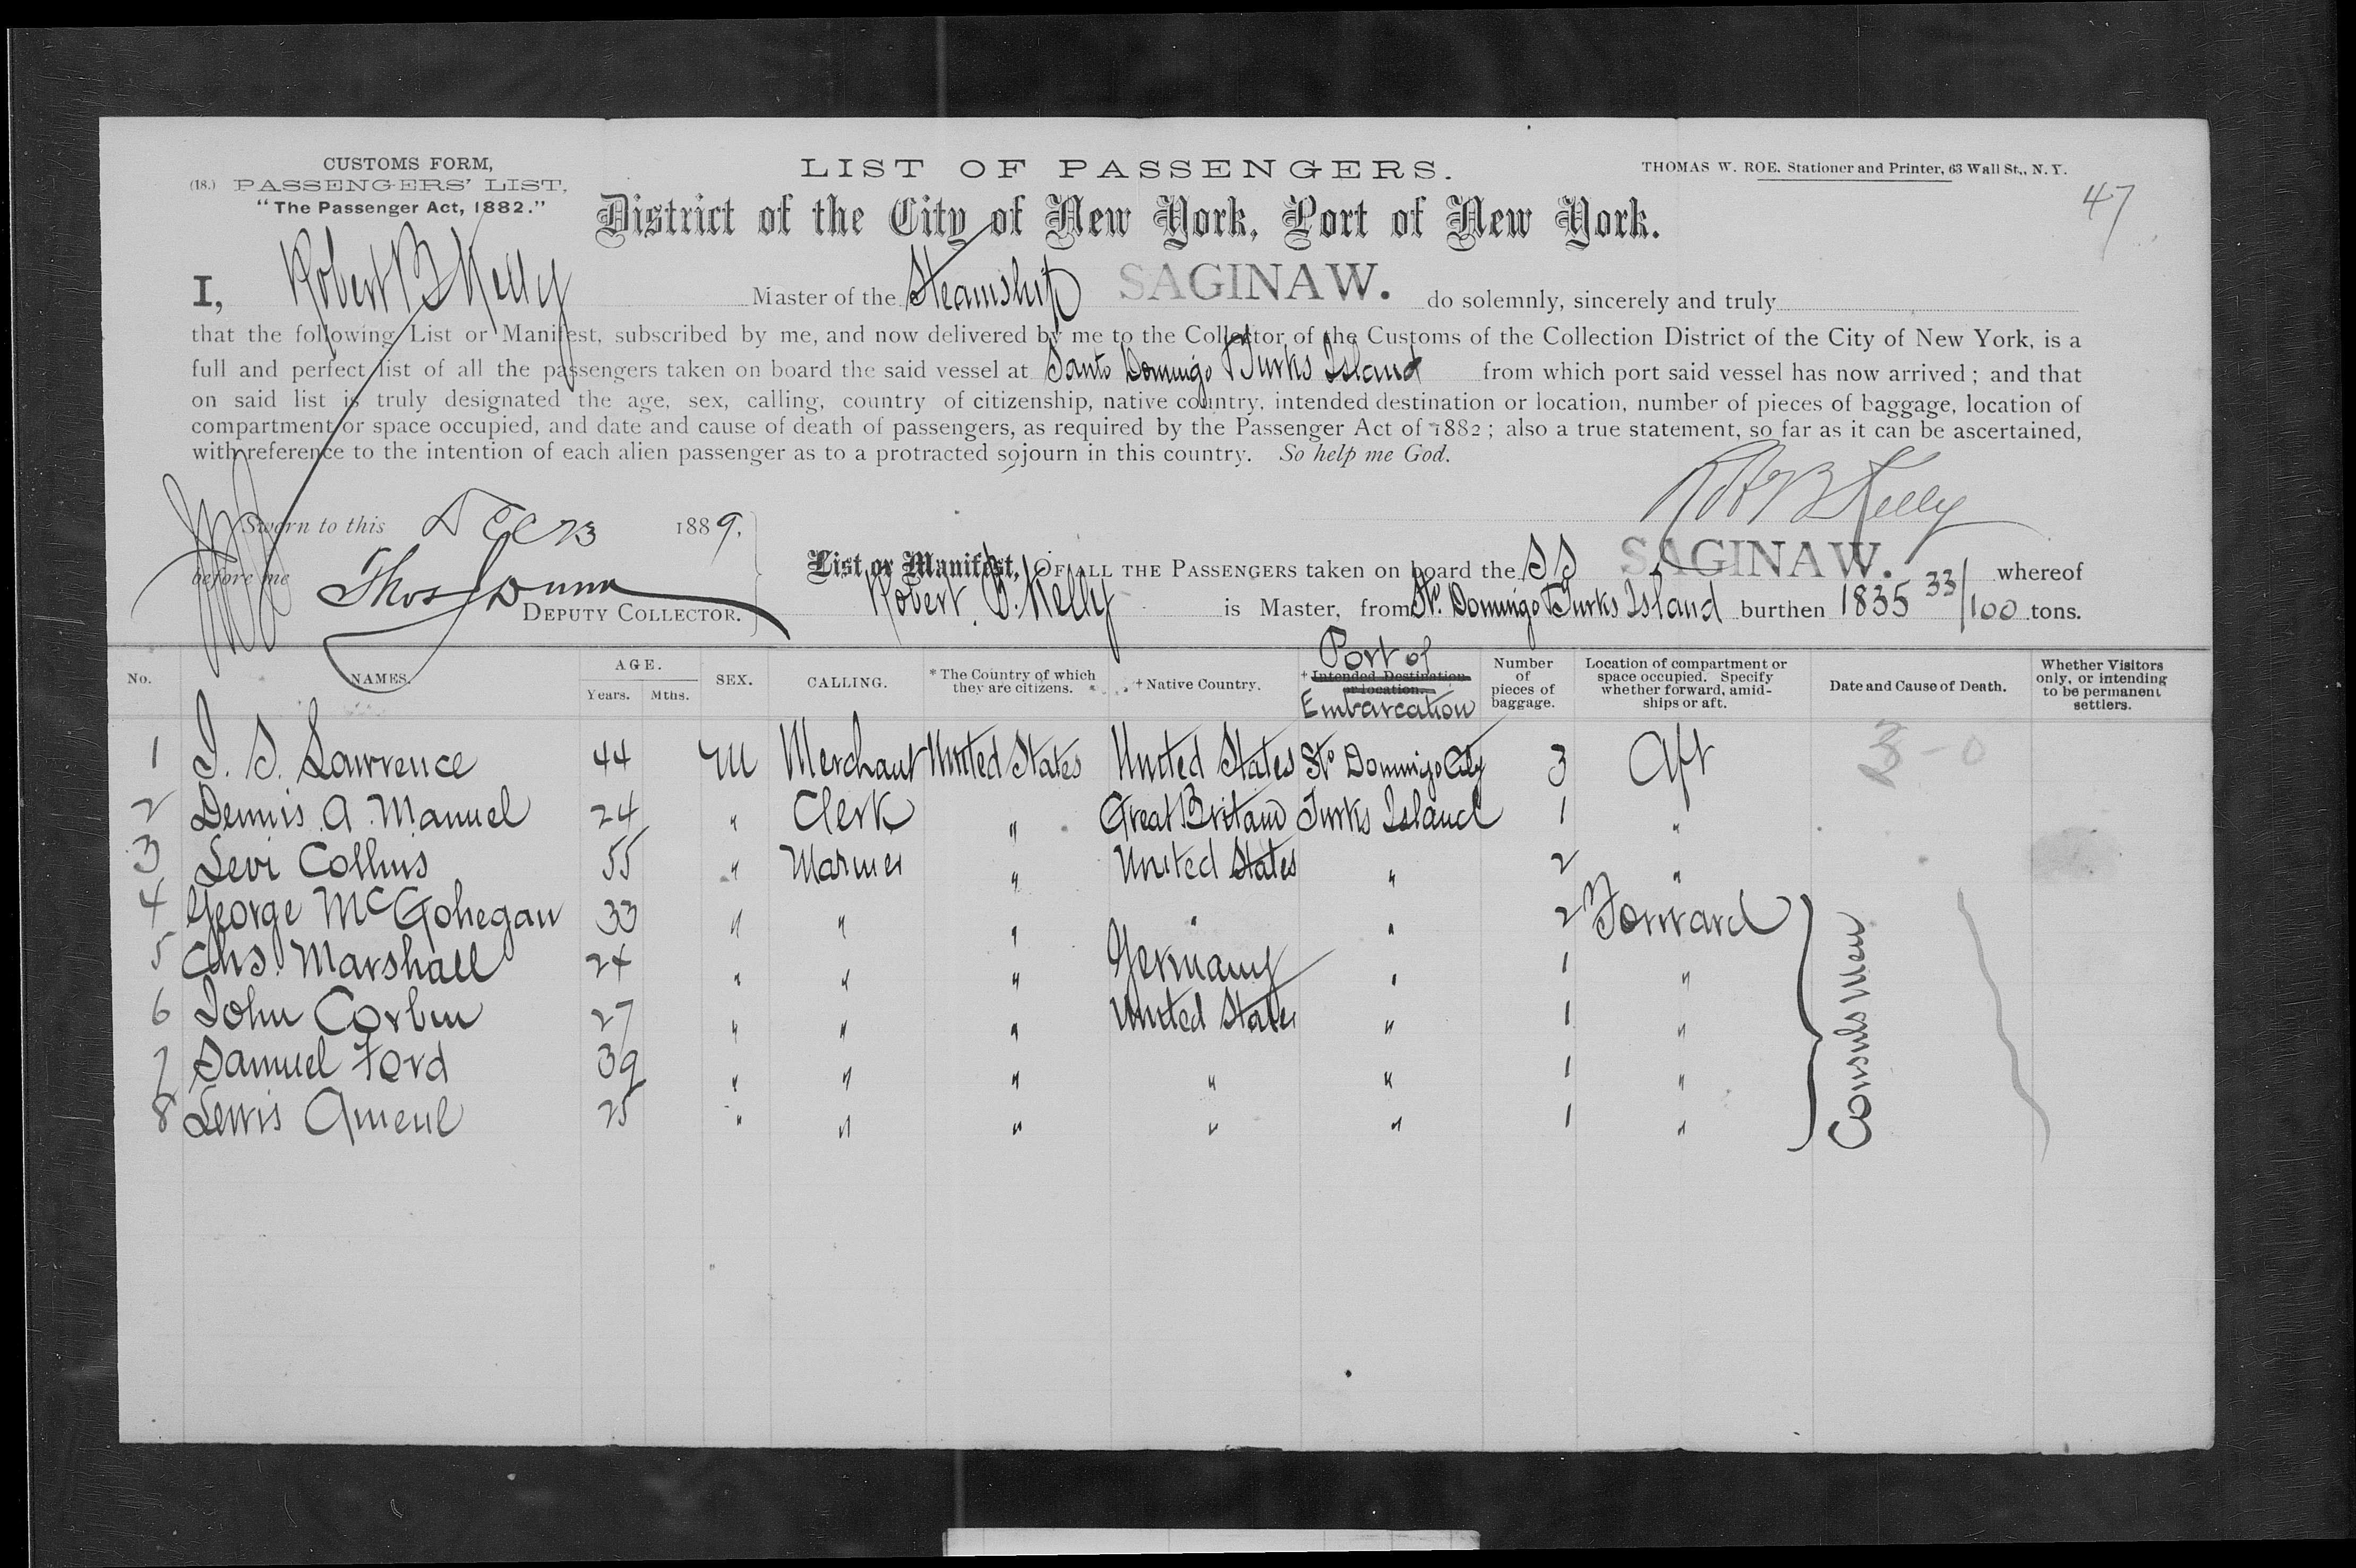 CUSTOMS FORM,
(18.) PASSENGERS' LIST,
"The Passenger Act, 1882."
LIST OF PASSENGERS.
THOMAS W. ROE. Stationer and Printer, 63 Wall St., N. Y.
47
District of the City of New York, Port of New York.
I, Robert B Kelly Master of the Steamship SAGINAW. do solemnly, sincerely and truly
that the following List or Manifest, subscribed by me, and now delivered by me to the Collector of the Customs of the Collection District of the City of New York, is a
full and perfect list of all the passengers taken on board the said vessel at Santo Domingo & Turks Island from which port said vessel has now arrived; and that
on said list is truly designated the age, sex, calling, country of citizenship, native country, intended destination or location, number of pieces of baggage, location of
compartment or space occupied, and date and cause of death of passengers, as required by the Passenger Act of 1882; also a true statement, so far as it can be ascertained,
with reference to the intention of each alien passenger as to a protracted sojourn in this country. So help me God.
Robt B Kelly
Sworn to this Dec 23 1889.
before me Thos Dunn
DEPUTY COLLECTOR.
List or Manifest, OF ALL THE PASSENGERS taken on board the SS SAGINAW. whereof
Robert B. Kelly is Master, from Sto. Domingo & Turks Island burthen 1835 33/100 tons.
No. NAMES. AGE. Years. Mths. SEX. CALLING. * The Country of which they are citizens. + Native Country. Port of + Intended Destination or location. Embarcation Number of pieces of baggage. Location of compartment or space occupied. Specify whether forward, amidships or aft. Date and Cause of Death. Whether Visitors only, or intending to be permanent settlers.
1 J. S. Lawrence 44 M Merchant United States United States Sto Domingo City 3 Aft 3-0
2 Dennis A. Manuel 24 " Clerk " Great Britain Turks Island 1 "
3 Levi Collins 55 " Mariner " United States " 2 "
4 George McGohegan 33 " " " " " 2 Forward
5 Chs. Marshall 24 " " " Germany " 1 "
6 John Corbin 27 " " " United States " 1 "
7 Samuel Ford 39 " " " " " 1 "
8 Lewis " 25 " " " " " 1 "
Consuls Men